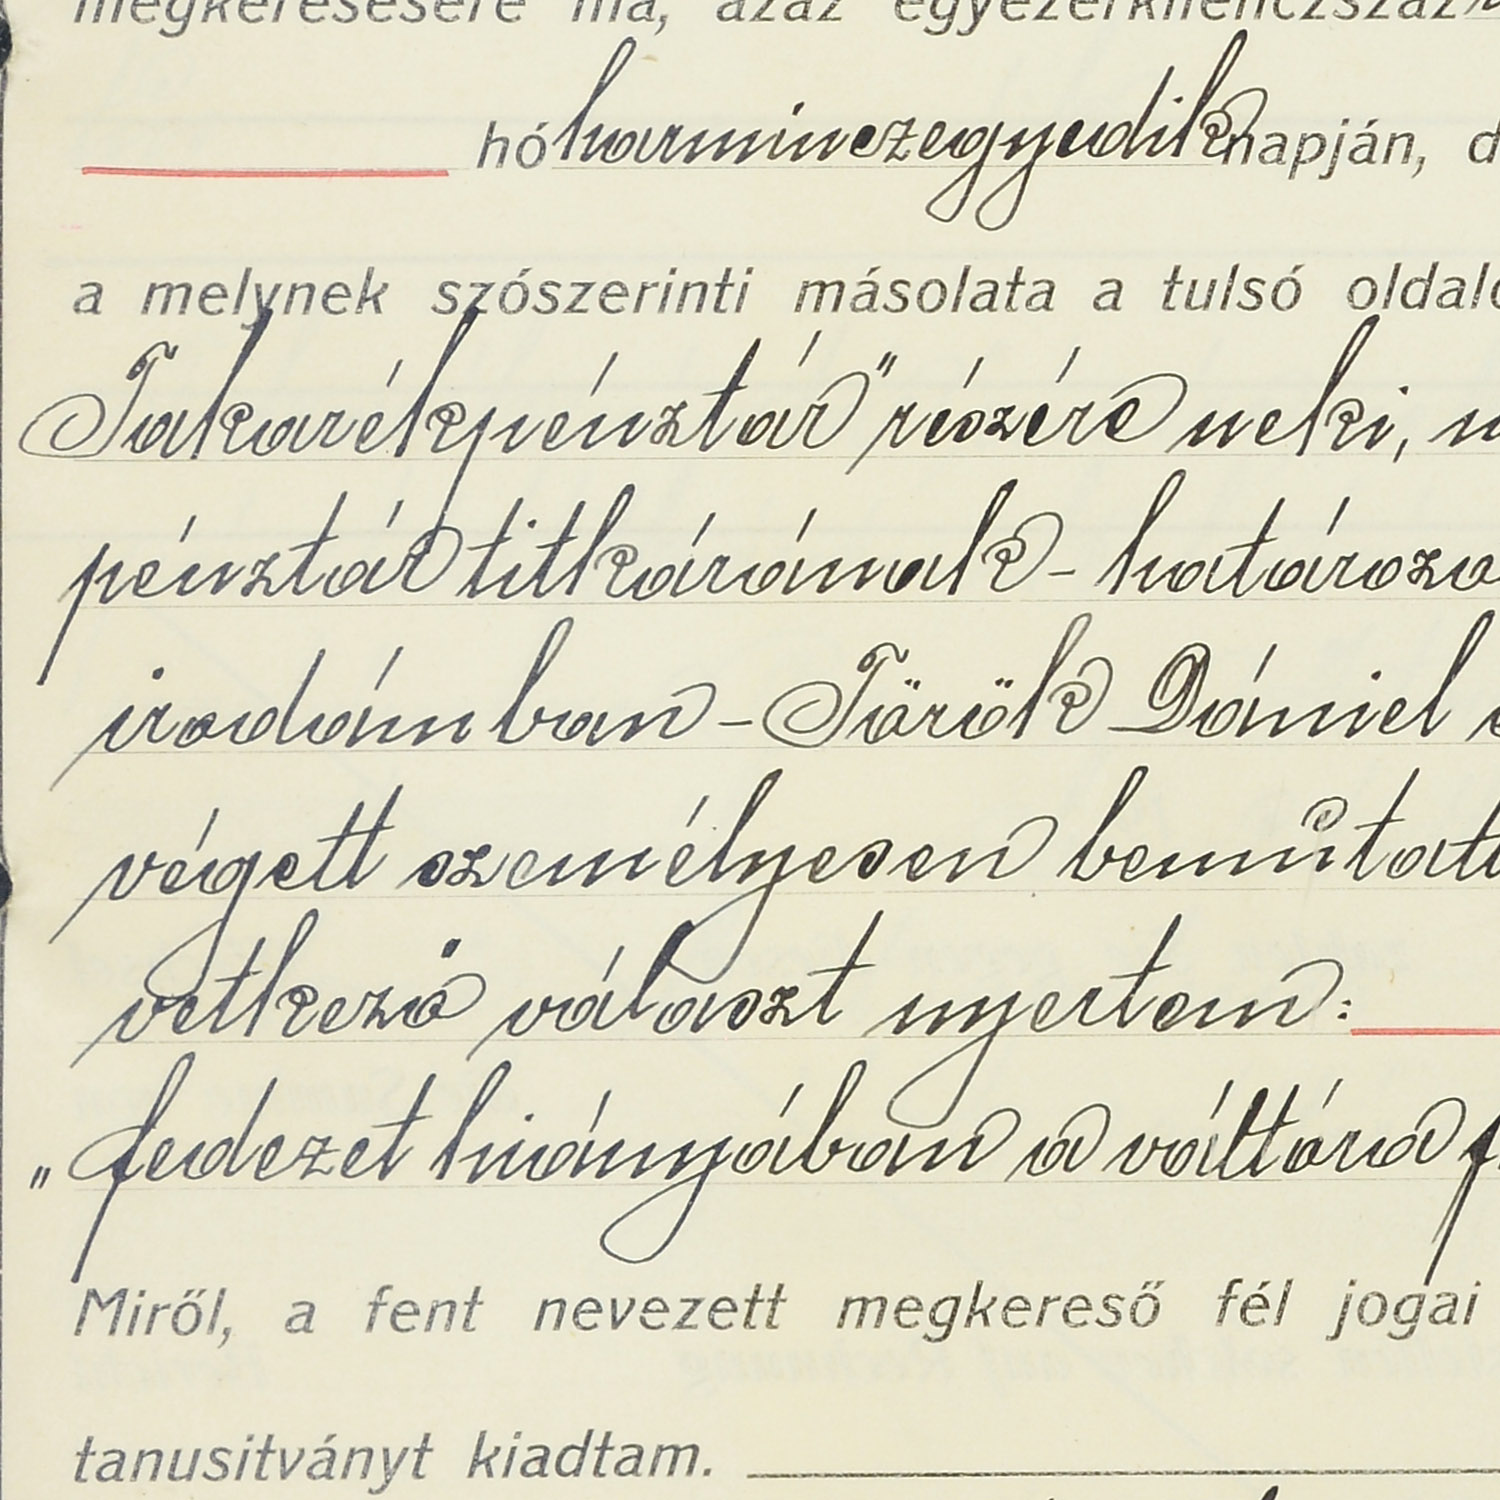 megkeresésére ma, azaz egyezerkilenczszáz
hó harminczegyedik napján, d
a melynek szószerinti másolata a tulsó oldalo
Takarékpénztár" részére neki, n
pénztár titkárának - határoza
irodámban - Török Dániel
végett személyesen bemutatt
vetkező választ nyertem:
„fedezet hiányában a váltóra f
Miről, a fent nevezett megkereső fél jogai
tanusitványt kiadtam.